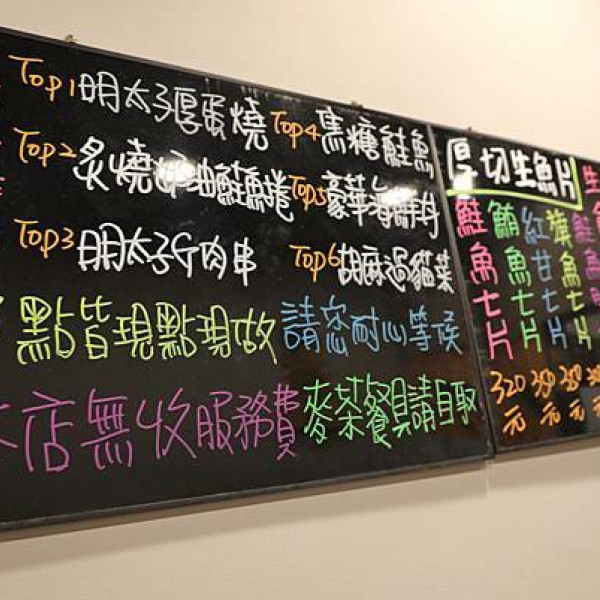 Top1 明太子厚蛋燒
Top2 炙燒奶油鮭魚捲
Top3 明太子牛肉串
Top4 焦糖鮭魚
Top5 豪華海鮮丼
Top6 胡麻過貓菜
點皆現點現做
請您耐心等候
本店無收服務費
麥茶餐具請自取
厚切生魚片
鮭魚七片 320元
鮪魚七片 350元
紅甘七片 350元
旗魚七片